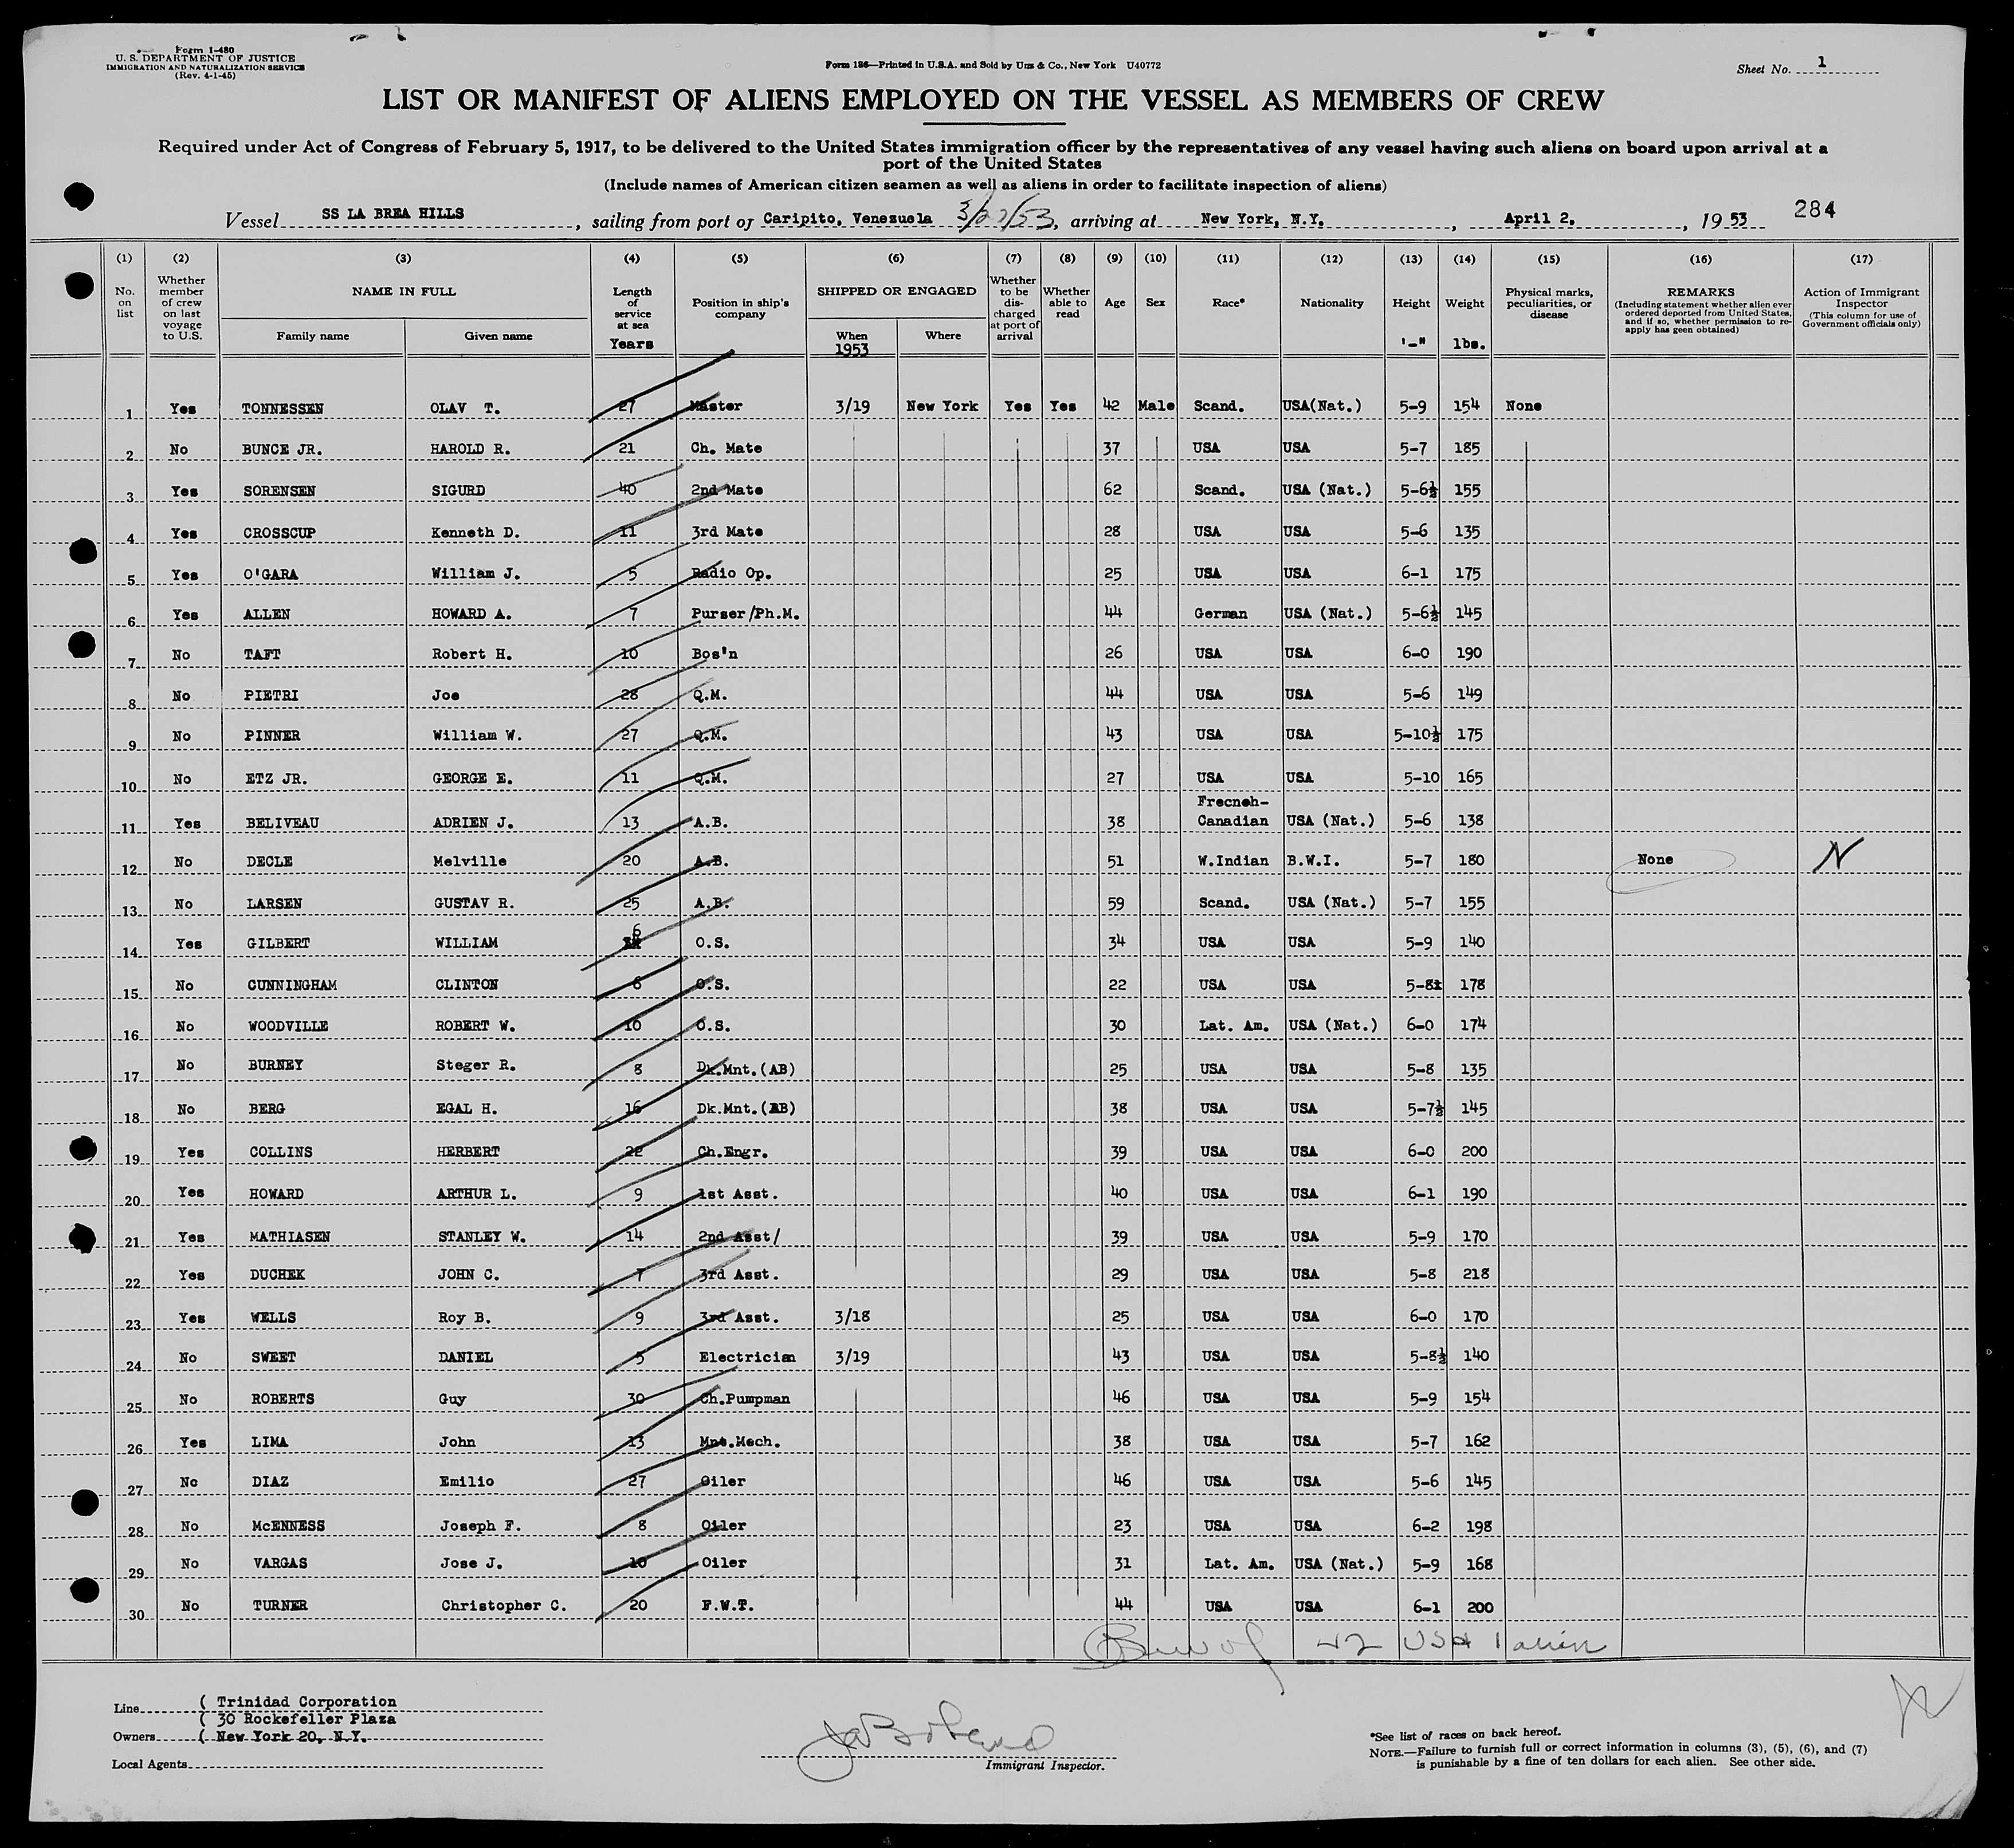 Form I-480
U. S. DEPARTMENT OF JUSTICE
IMMIGRATION AND NATURALIZATION SERVICE
(Rev. 4-1-45)
Form 186—Printed in U.S.A. and Sold by Unz & Co., New York U40772
Sheet No. 1
LIST OR MANIFEST OF ALIENS EMPLOYED ON THE VESSEL AS MEMBERS OF CREW
Required under Act of Congress of February 5, 1917, to be delivered to the United States immigration officer by the representatives of any vessel having such aliens on board upon arrival at a
port of the United States
(Include names of American citizen seamen as well as aliens in order to facilitate inspection of aliens)
284
Vessel SS LA BREA HILLS, sailing from port of Caripito, Venezuela 3/27/53, arriving at New York, N.Y., April 2, 1953
(1) (2) (3) (4) (5) (6) (7) (8) (9) (10) (11) (12) (13) (14) (15) (16) (17)
No. on list
Whether member of crew on last voyage to U.S.
NAME IN FULL
Family name Given name
Length of service at sea
Years
Position in ship's company
SHIPPED OR ENGAGED
When Where
1953
Whether to be discharged at port of arrival
Whether able to read
Age
Sex
Race*
Nationality
Height
'-"
Weight
lbs.
Physical marks, peculiarities, or disease
REMARKS
(Including statement whether alien ever ordered deported from United States, and if so, whether permission to re-apply has geen obtained)
Action of Immigrant Inspector
(This column for use of Government officials only)
1 Yes TONNESSEN OLAV T. 27 Master 3/19 New York Yes Yes 42 Male Scand. USA(Nat.) 5-9 154 None
2 No BUNCE JR. HAROLD R. 21 Ch. Mate 37 USA USA 5-7 185
3 Yes SORENSEN SIGURD 40 2nd Mate 62 Scand. USA (Nat.) 5-6½ 155
4 Yes CROSSCUP Kenneth D. 11 3rd Mate 28 USA USA 5-6 135
5 Yes O'GARA William J. 5 Radio Op. 25 USA USA 6-1 175
6 Yes ALLEN HOWARD A. 7 Purser/Ph.M. 44 German USA (Nat.) 5-6½ 145
7 No TAFT Robert H. 10 Bos'n 26 USA USA 6-0 190
8 No PIETRI Joe 28 Q.M. 44 USA USA 5-6 149
9 No PINNER William W. 27 Q.M. 43 USA USA 5-10½ 175
10 No ETZ JR. GEORGE E. 11 Q.M. 27 USA USA 5-10 165
11 Yes BELIVEAU ADRIEN J. 13 A.B. 38 Frecneh-Canadian USA (Nat.) 5-6 138
12 No DECLE Melville 20 A.B. 51 W.Indian B.W.I. 5-7 180 None N
13 No LARSEN GUSTAV R. 25 A.B. 59 Scand. USA (Nat.) 5-7 155
14 Yes GILBERT WILLIAM 6 O.S. 34 USA USA 5-9 140
15 No CUNNINGHAM CLINTON 8 O.S. 22 USA USA 5-8 178
16 No WOODVILLE ROBERT W. 10 O.S. 30 Lat. Am. USA (Nat.) 6-0 174
17 No BURNEY Steger R. 8 Dk.Mnt.(AB) 25 USA USA 5-8 135
18 No BERG EGAL H. 16 Dk.Mnt.(AB) 38 USA USA 5-7½ 145
19 Yes COLLINS HERBERT 22 Ch.Engr. 39 USA USA 6-0 200
20 Yes HOWARD ARTHUR L. 9 1st Asst. 40 USA USA 6-1 190
21 Yes MATHIASEN STANLEY W. 14 2nd Asst/ 39 USA USA 5-9 170
22 Yes DUCHEK JOHN C. 7 3rd Asst. 29 USA USA 5-8 218
23 Yes WELLS Roy B. 9 3rd Asst. 3/18 25 USA USA 6-0 170
24 No SWEET DANIEL 5 Electrician 3/19 43 USA USA 5-8½ 140
25 No ROBERTS Guy 30 Ch.Pumpman 46 USA USA 5-9 154
26 Yes LIMA John 13 Mnt.Mech. 38 USA USA 5-7 162
27 No DIAZ Emilio 27 Oiler 46 USA USA 5-6 145
28 No McENNESS Joseph F. 8 Oiler 23 USA USA 6-2 198
29 No VARGAS Jose J. 10 Oiler 31 Lat. Am. USA (Nat.) 5-9 168
30 No TURNER Christopher C. 20 F.W.T. 44 USA USA 6-1 200
42 USA 1 alien
Line ( Trinidad Corporation
( 30 Rockefeller Plaza
Owners ( New York 20, N.Y.
Local Agents
Immigrant Inspector.
*See list of races on back hereof.
NOTE.—Failure to furnish full or correct information in columns (3), (5), (6), and (7)
is punishable by a fine of ten dollars for each alien. See other side.